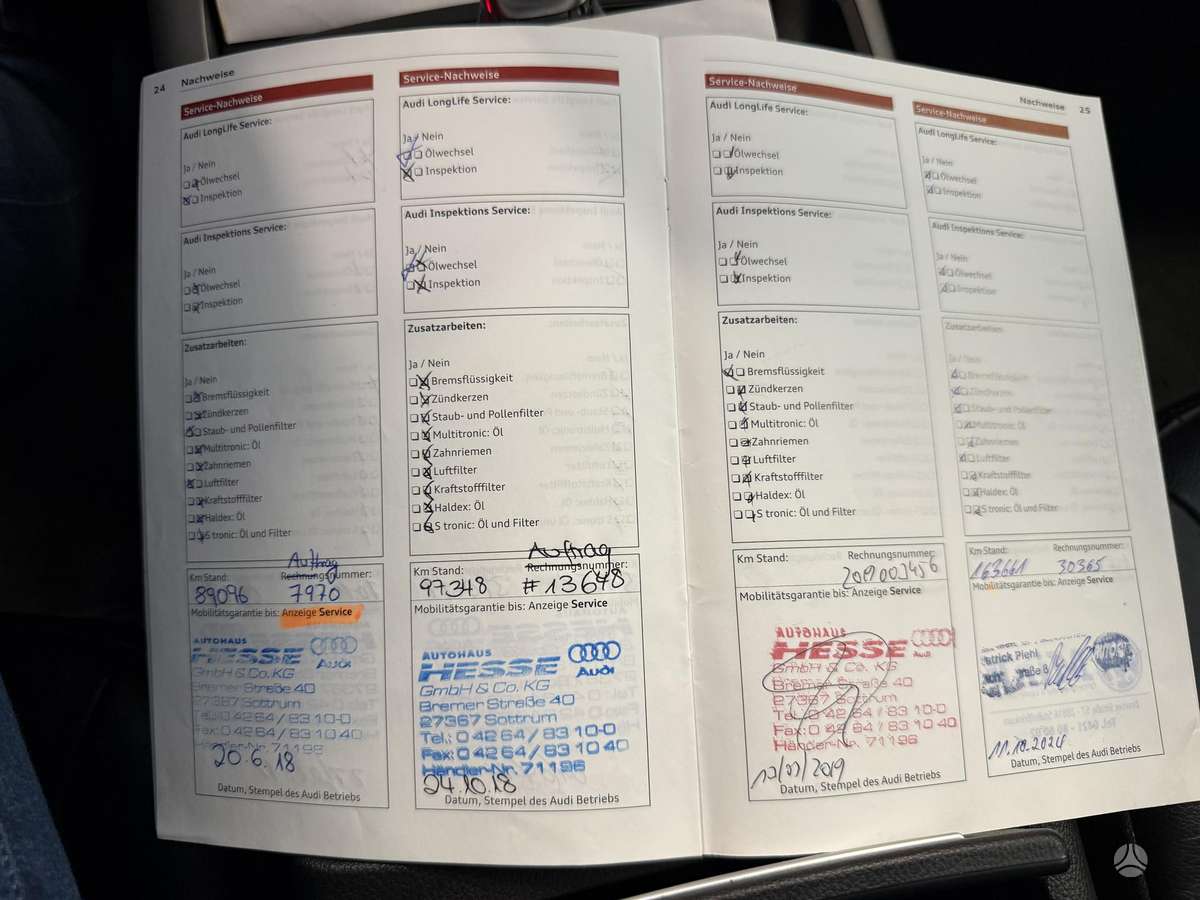 24 Nachweise
Service-Nachweise
Audi LongLife Service:
Ja / Nein
Ölwechsel
Inspektion
Audi Inspektions Service:
Ja / Nein
Ölwechsel
Inspektion
Zusatzarbeiten:
Ja / Nein
Bremsflüssigkeit
Zündkerzen
Staub- und Pollenfilter
Multitronic: Öl
Zahnriemen
Luftfilter
Kraftstofffilter
Haldex: Öl
S tronic: Öl und Filter
Auftrag
Km Stand: Rechnungsnummer:
89096 7970
Mobilitätsgarantie bis: Anzeige Service
AUTOHAUS
HESSE Audi
GmbH & Co. KG
Bremer Straße 40
27367 Sottrum
Tel.: 0 42 64 / 83 10-0
Fax: 0 42 64 / 83 10 40
Händler-Nr. 71196
20.6.18
Datum, Stempel des Audi Betriebs
Service-Nachweise
Audi LongLife Service:
Ja / Nein
Ölwechsel
Inspektion
Audi Inspektions Service:
Ja / Nein
Ölwechsel
Inspektion
Zusatzarbeiten:
Ja / Nein
Bremsflüssigkeit
Zündkerzen
Staub- und Pollenfilter
Multitronic: Öl
Zahnriemen
Luftfilter
Kraftstofffilter
Haldex: Öl
S tronic: Öl und Filter
Auftrag
Km Stand: Rechnungsnummer:
97348 #13648
Mobilitätsgarantie bis: Anzeige Service
AUTOHAUS
HESSE Audi
GmbH & Co. KG
Bremer Straße 40
27367 Sottrum
Tel.: 0 42 64 / 83 10-0
Fax: 0 42 64 / 83 10 40
Händler-Nr. 71196
24.10.18
Datum, Stempel des Audi Betriebs
Nachweise 25
Service-Nachweise
Audi LongLife Service:
Ja / Nein
Ölwechsel
Inspektion
Audi Inspektions Service:
Ja / Nein
Ölwechsel
Inspektion
Zusatzarbeiten:
Ja / Nein
Bremsflüssigkeit
Zündkerzen
Staub- und Pollenfilter
Multitronic: Öl
Zahnriemen
Luftfilter
Kraftstofffilter
Haldex: Öl
S tronic: Öl und Filter
Km Stand: Rechnungsnummer:
2019003456
Mobilitätsgarantie bis: Anzeige Service
AUTOHAUS
HESSE Audi
GmbH & Co. KG
Bremer Straße 40
27367 Sottrum
Tel.: 0 42 64 / 83 10-0
Fax: 0 42 64 / 83 10 40
Händler-Nr. 71196
Datum, Stempel des Audi Betriebs
Service-Nachweise
Audi LongLife Service:
Ja / Nein
Ölwechsel
Inspektion
Audi Inspektions Service:
Ja / Nein
Ölwechsel
Inspektion
Zusatzarbeiten:
Ja / Nein
Bremsflüssigkeit
Zündkerzen
Staub- und Pollenfilter
Multitronic: Öl
Zahnriemen
Luftfilter
Kraftstofffilter
Haldex: Öl
S tronic: Öl und Filter
Km Stand: Rechnungsnummer:
30365
Mobilitätsgarantie bis: Anzeige Service
Piehl
11.10.2024
Datum, Stempel des Audi Betriebs